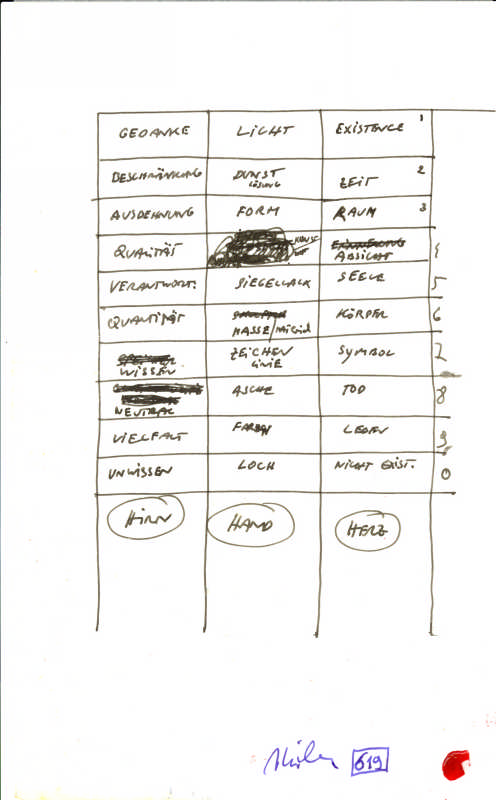 GEDANKE LICHT EXISTENCE 1
BESCHRÄNKUNG DUNST 2
LÖSUNG ZEIT
AUSDEHNUNG FORM RAUM 3
QUALITÄT ABSICHT 4
VERANTWORT. SIEGELLACK SEELE 5
QUANTITÄT MASSE/ KÖRPER 6
ZEICHEN SYMBOL 7
WISSEN LINIE
ASCHE TOD 8
NEUTRAL
VIELFALT FARBEN LEBEN 9
UNWISSEN LOCH NICHT EXIST. 0
HIRN HAND HERZ
619